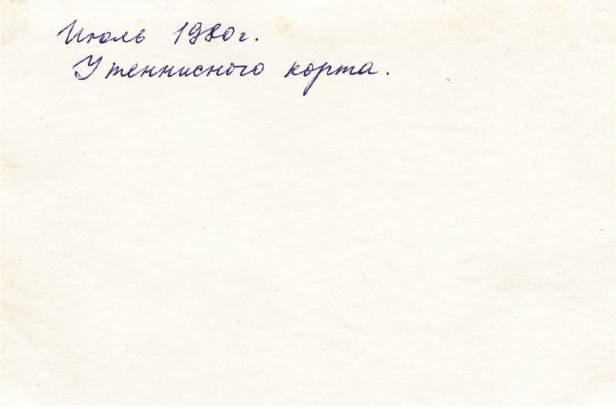 Июль 1980г.
У теннисного корта.